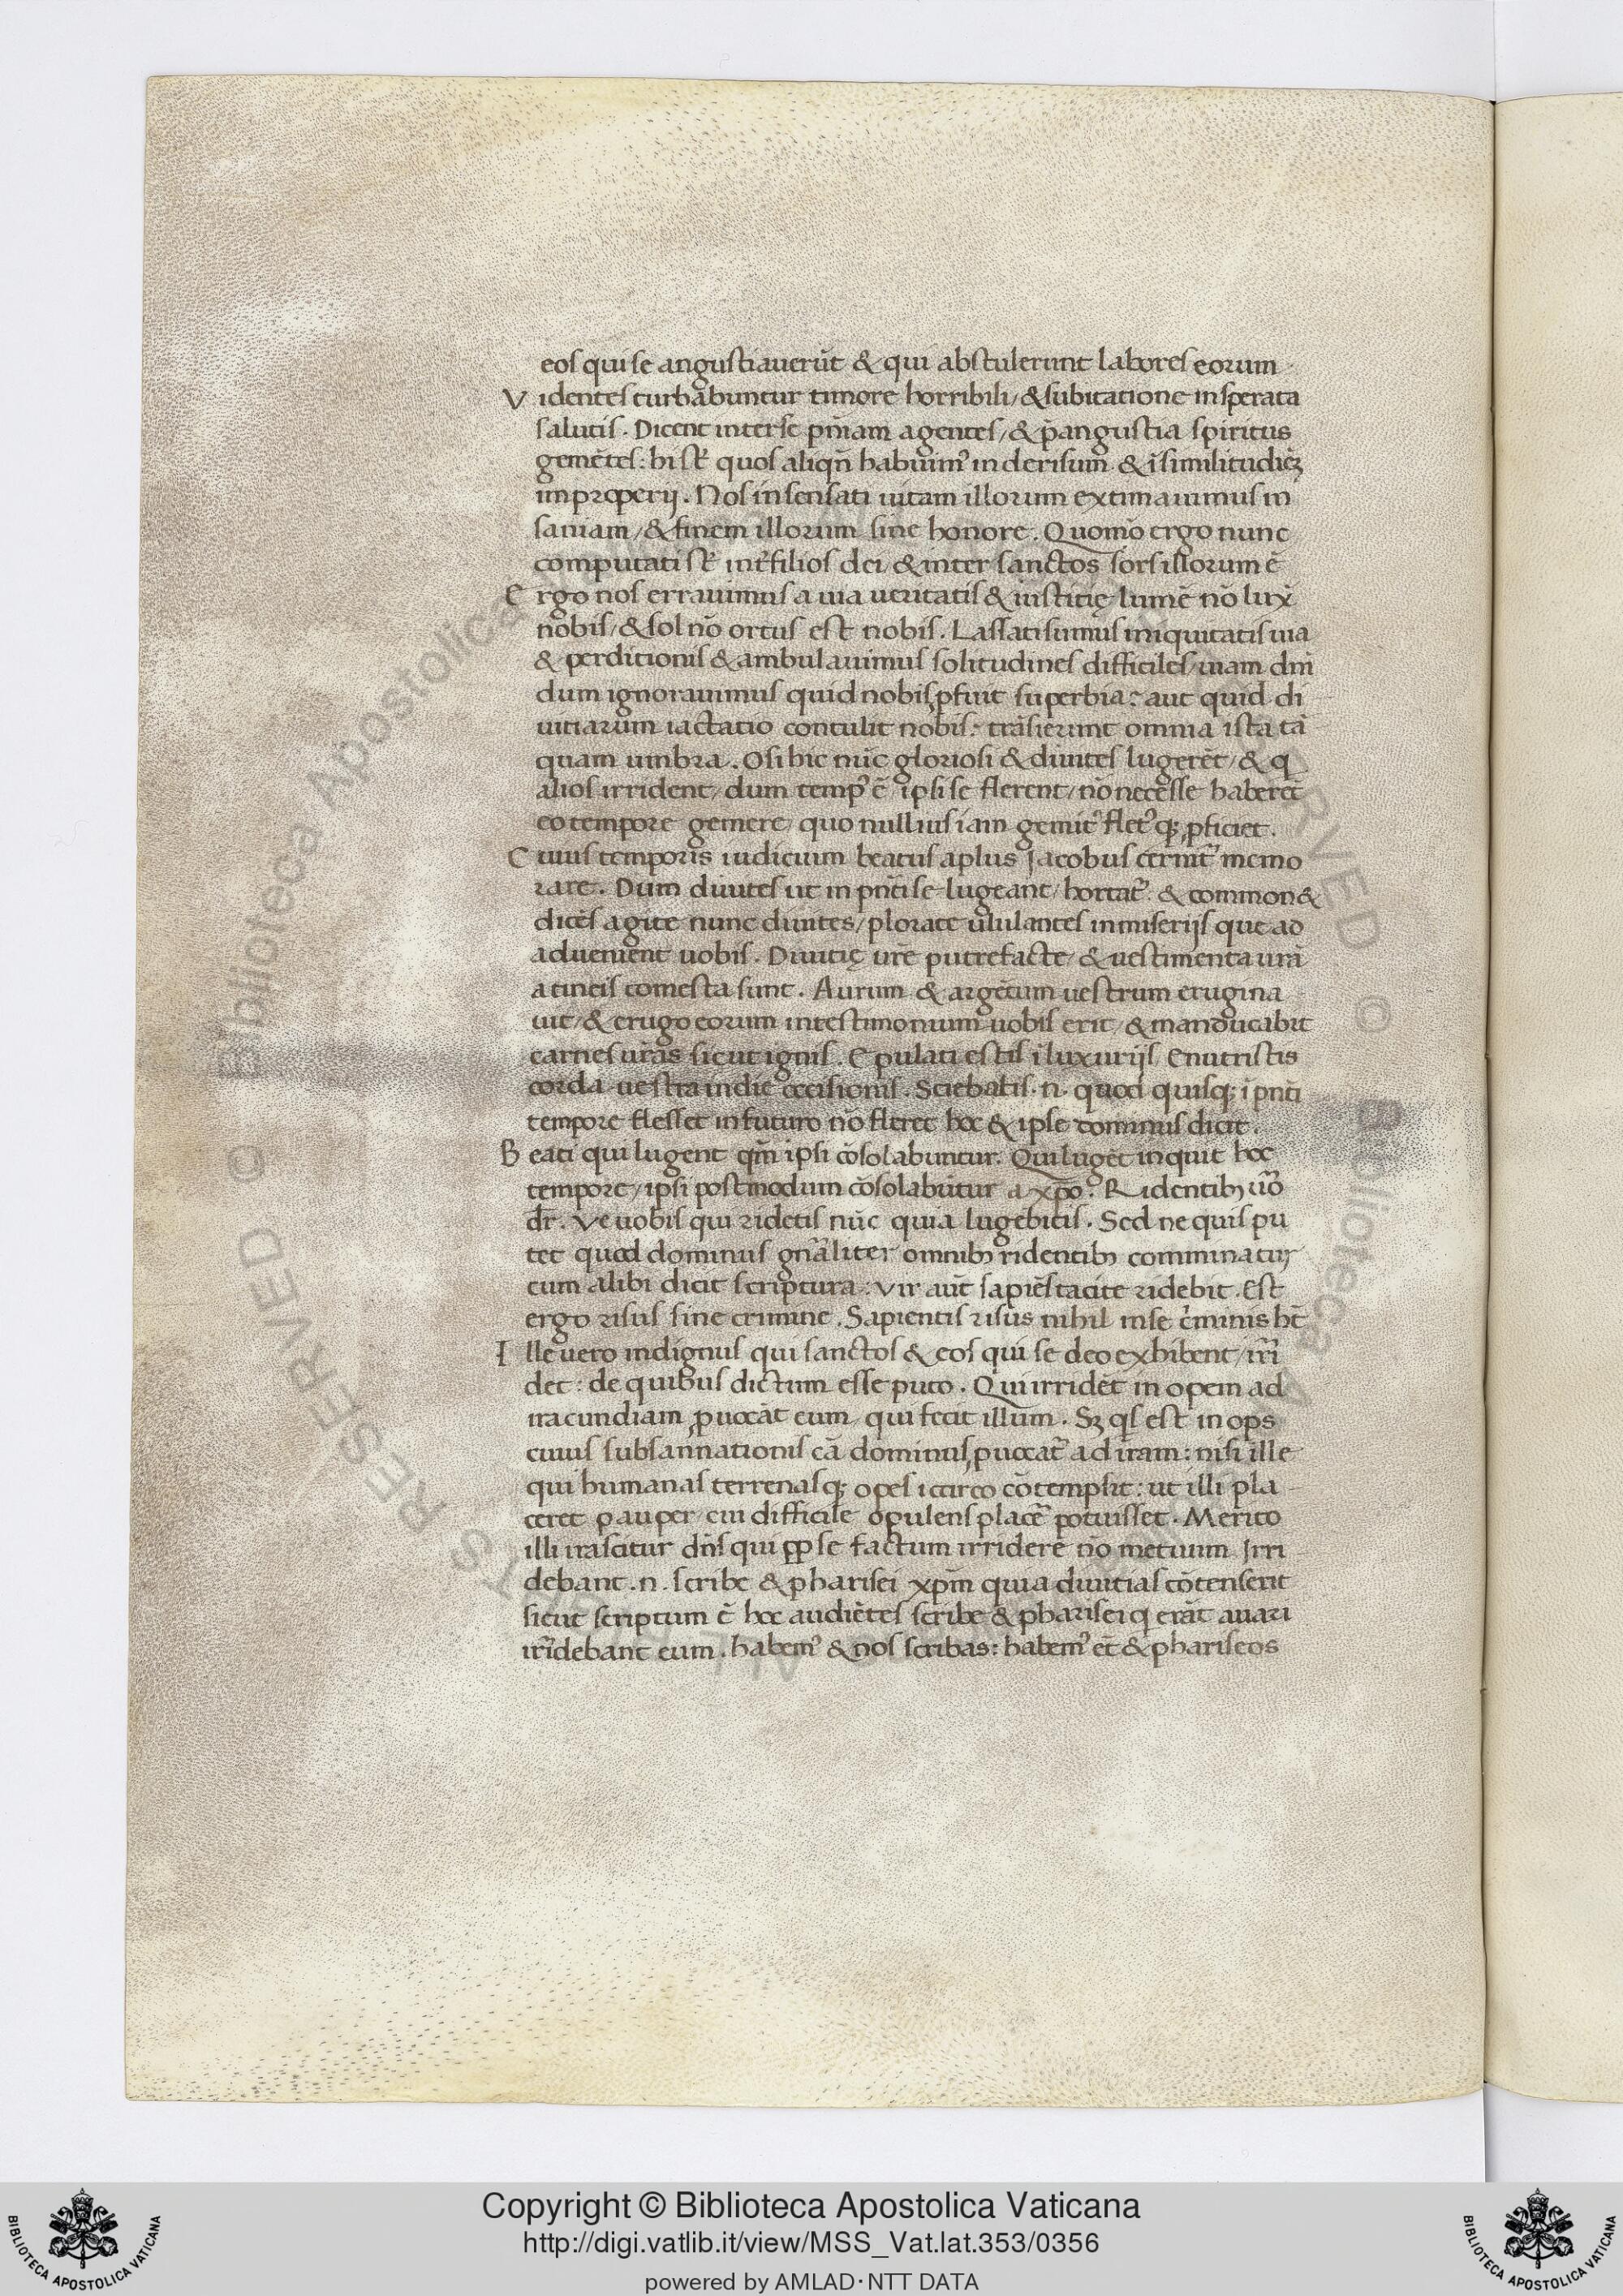 eos qui se angustiauerūt & qui abstulerunt labores eorum
Videntes turbabuntur timore horribili/ & subitatione insperata
salutis. Dicent inter se pnĩam agentes/ & p̃angustia spiritus
gemẽtes: hi st̃ quos aliqñ habuimꝰ in derisum & ĩ similitudiẽꝫ
improperij. Nos insensati uitam illorum extimauimus in
saniam/ & finem illorum sine honore. Quomõ ergo nunc
computati st̃ int̃ filios dei/ & inter sanctos sors illorum ẽ
Ergo nos errauimus a uia ueritatis & iustitię lumẽ nõ lux̃
nobis/ & sol nõ ortus est nobis. Lassati sumus iniquitatis uia
& perditionis & ambulauimus solitudines difficiles/ uiam dñi
dum ignorauimus quid nobis ꝓfuit superbia: aut quid di
uitiarum iactatio contulit nobis: trãsierunt omnia ista tã
quam umbra. O si hic nũc gloriosi & diuites lugerẽt/ & q
alios irrident/ dum tempꝰ ẽ/ ipsi se flerent/ nõ necesse haberẽt
eo tempore gemere/ quo nullius iam gemitꝰ fletꝰqꝫ ꝓficiet.
Cuius temporis iudicium beatus aplus Jacobus cernit̃ memo
rare. Dum diuites ut in pñti se lugeant/ hortat̃ & common&
dicẽs agite nunc diuites/ plorate ululantes in miserijs que ad
aduenient uobis. Diuitię ur̃e putrefacte/ & uestimenta ur̃a
a tineis comesta sunt. Aurum & argẽtum uestrum erugina
uit/ & erugo eorum in testimonium uobis erit/ & manducabit
carnes ur̃as sicut ignis. Epulati estis ĩ luxurijs Enutristis
corda uestra in die occisionis. Sciebatis.n. quod quisqꝫ ĩ pñti
tempore flesset in futuro nõ fleret hoc & ipse dominus dicit.
Beati qui lugent qm̃ ipsi cõsolabuntur. Qui lugẽt inquit hoc
tempore/ ipsi postmodum cõsolabũtur a xp̃o. Ridentibꝫ ũo
dr̃. Ve uobis qui ridetis nũc quia lugebitis. Sed ne quis pu
tet quod dominus gñaliter omnibꝫ ridentibꝫ comminatur
cum alibi dicit scriptura: Vir aũt sapiẽs tacite ridebit. Est
ergo risus sine crimine. Sapientis risus nihil in se c̃minis ht̃
Ille uero indignus qui sanctos & eos qui se deo exhibent/ irri
det: de quibus dictum esse puto. Qui irridẽt inopem ad
iracundiam ꝓuocãt eum/ qui fecit illum. Sꝫ qs̃ est inops
cuius subsannationis cã dominus ꝓuocat̃ ad iram: nisi ille
qui humanas terrenasqꝫ opes iccirco cõtempsit: ut illi pla
ceret pauper/ cui difficile opulens placẽ potuisset. Merito
illi irascitur dñs qui ꝓp se factum irridere nõ metuum Irri
debant.n. scribe & pharisei xpm̃ quia diuitias cõtenserit
sicut scriptum ẽ hoc audiẽtes scribe & pharisei q erãt auari
irridebant eum. habemꝰ & nos scribas: habemꝰ et̃ & phariseos
Copyright © Biblioteca Apostolica Vaticana
http://digi.vatlib.it/view/MSS_Vat.lat.353/0356
powered by AMLAD·NTT DATA